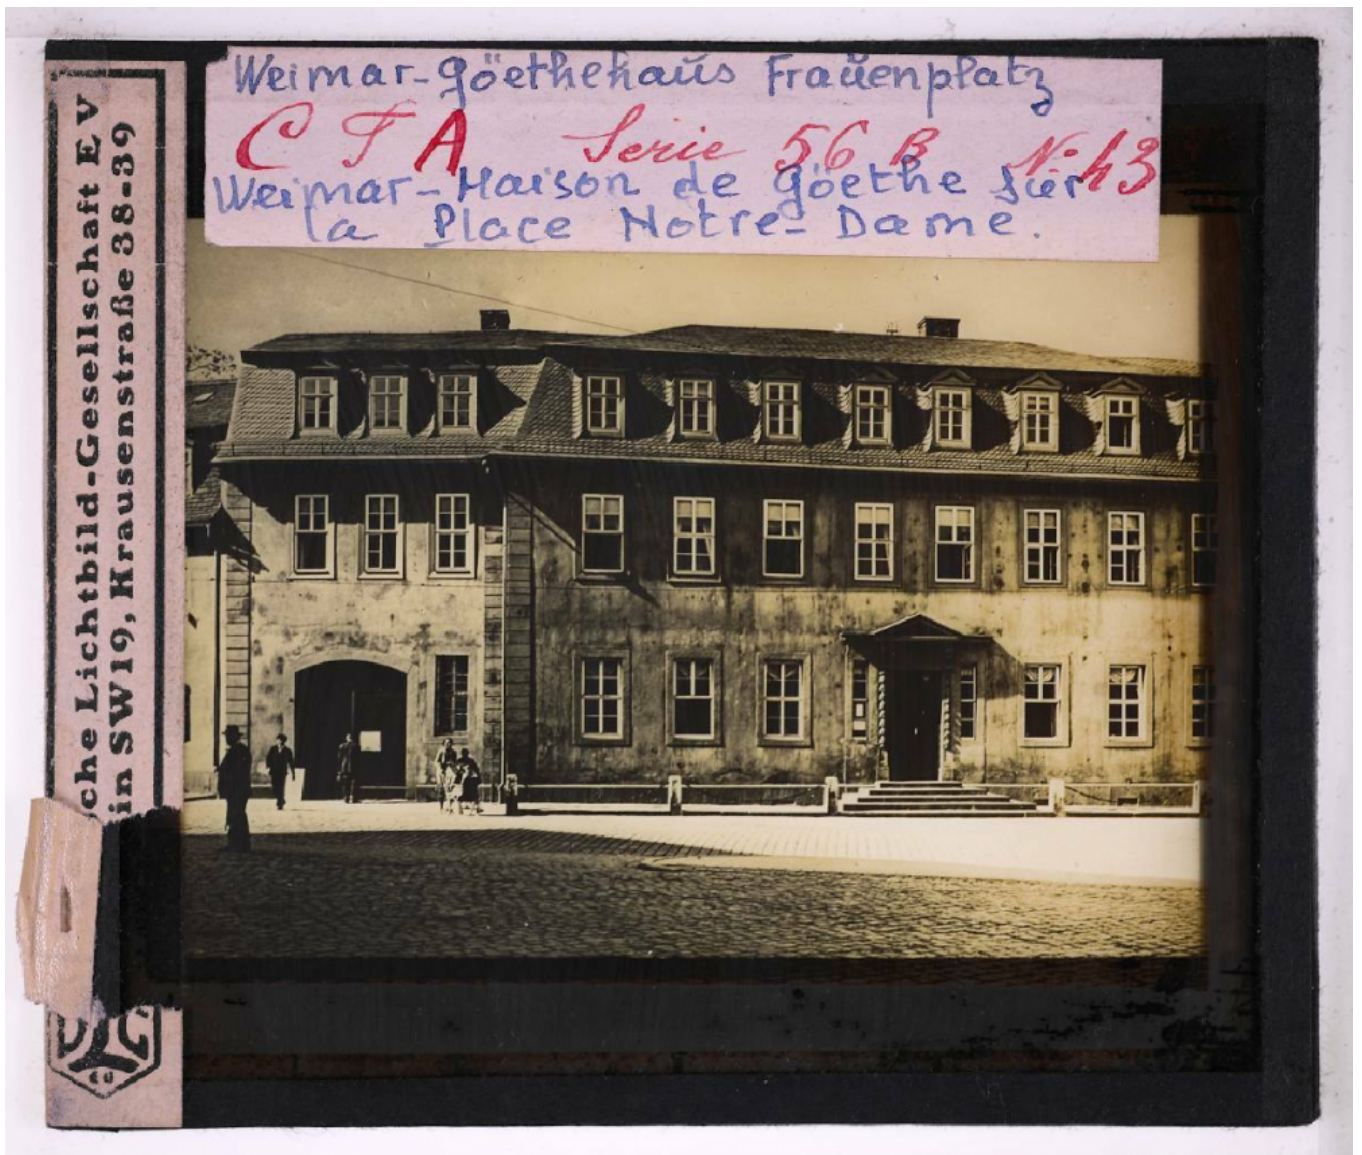 Weimar-Göethehaüs Fraüenplatz
C F A Serie 56 B No 43
Weimar-Maison de Göethe sür
la Place Notre-Dame.
che Lichtbild-Gesellschaft E V
in SW19, Krausenstraße 38-39